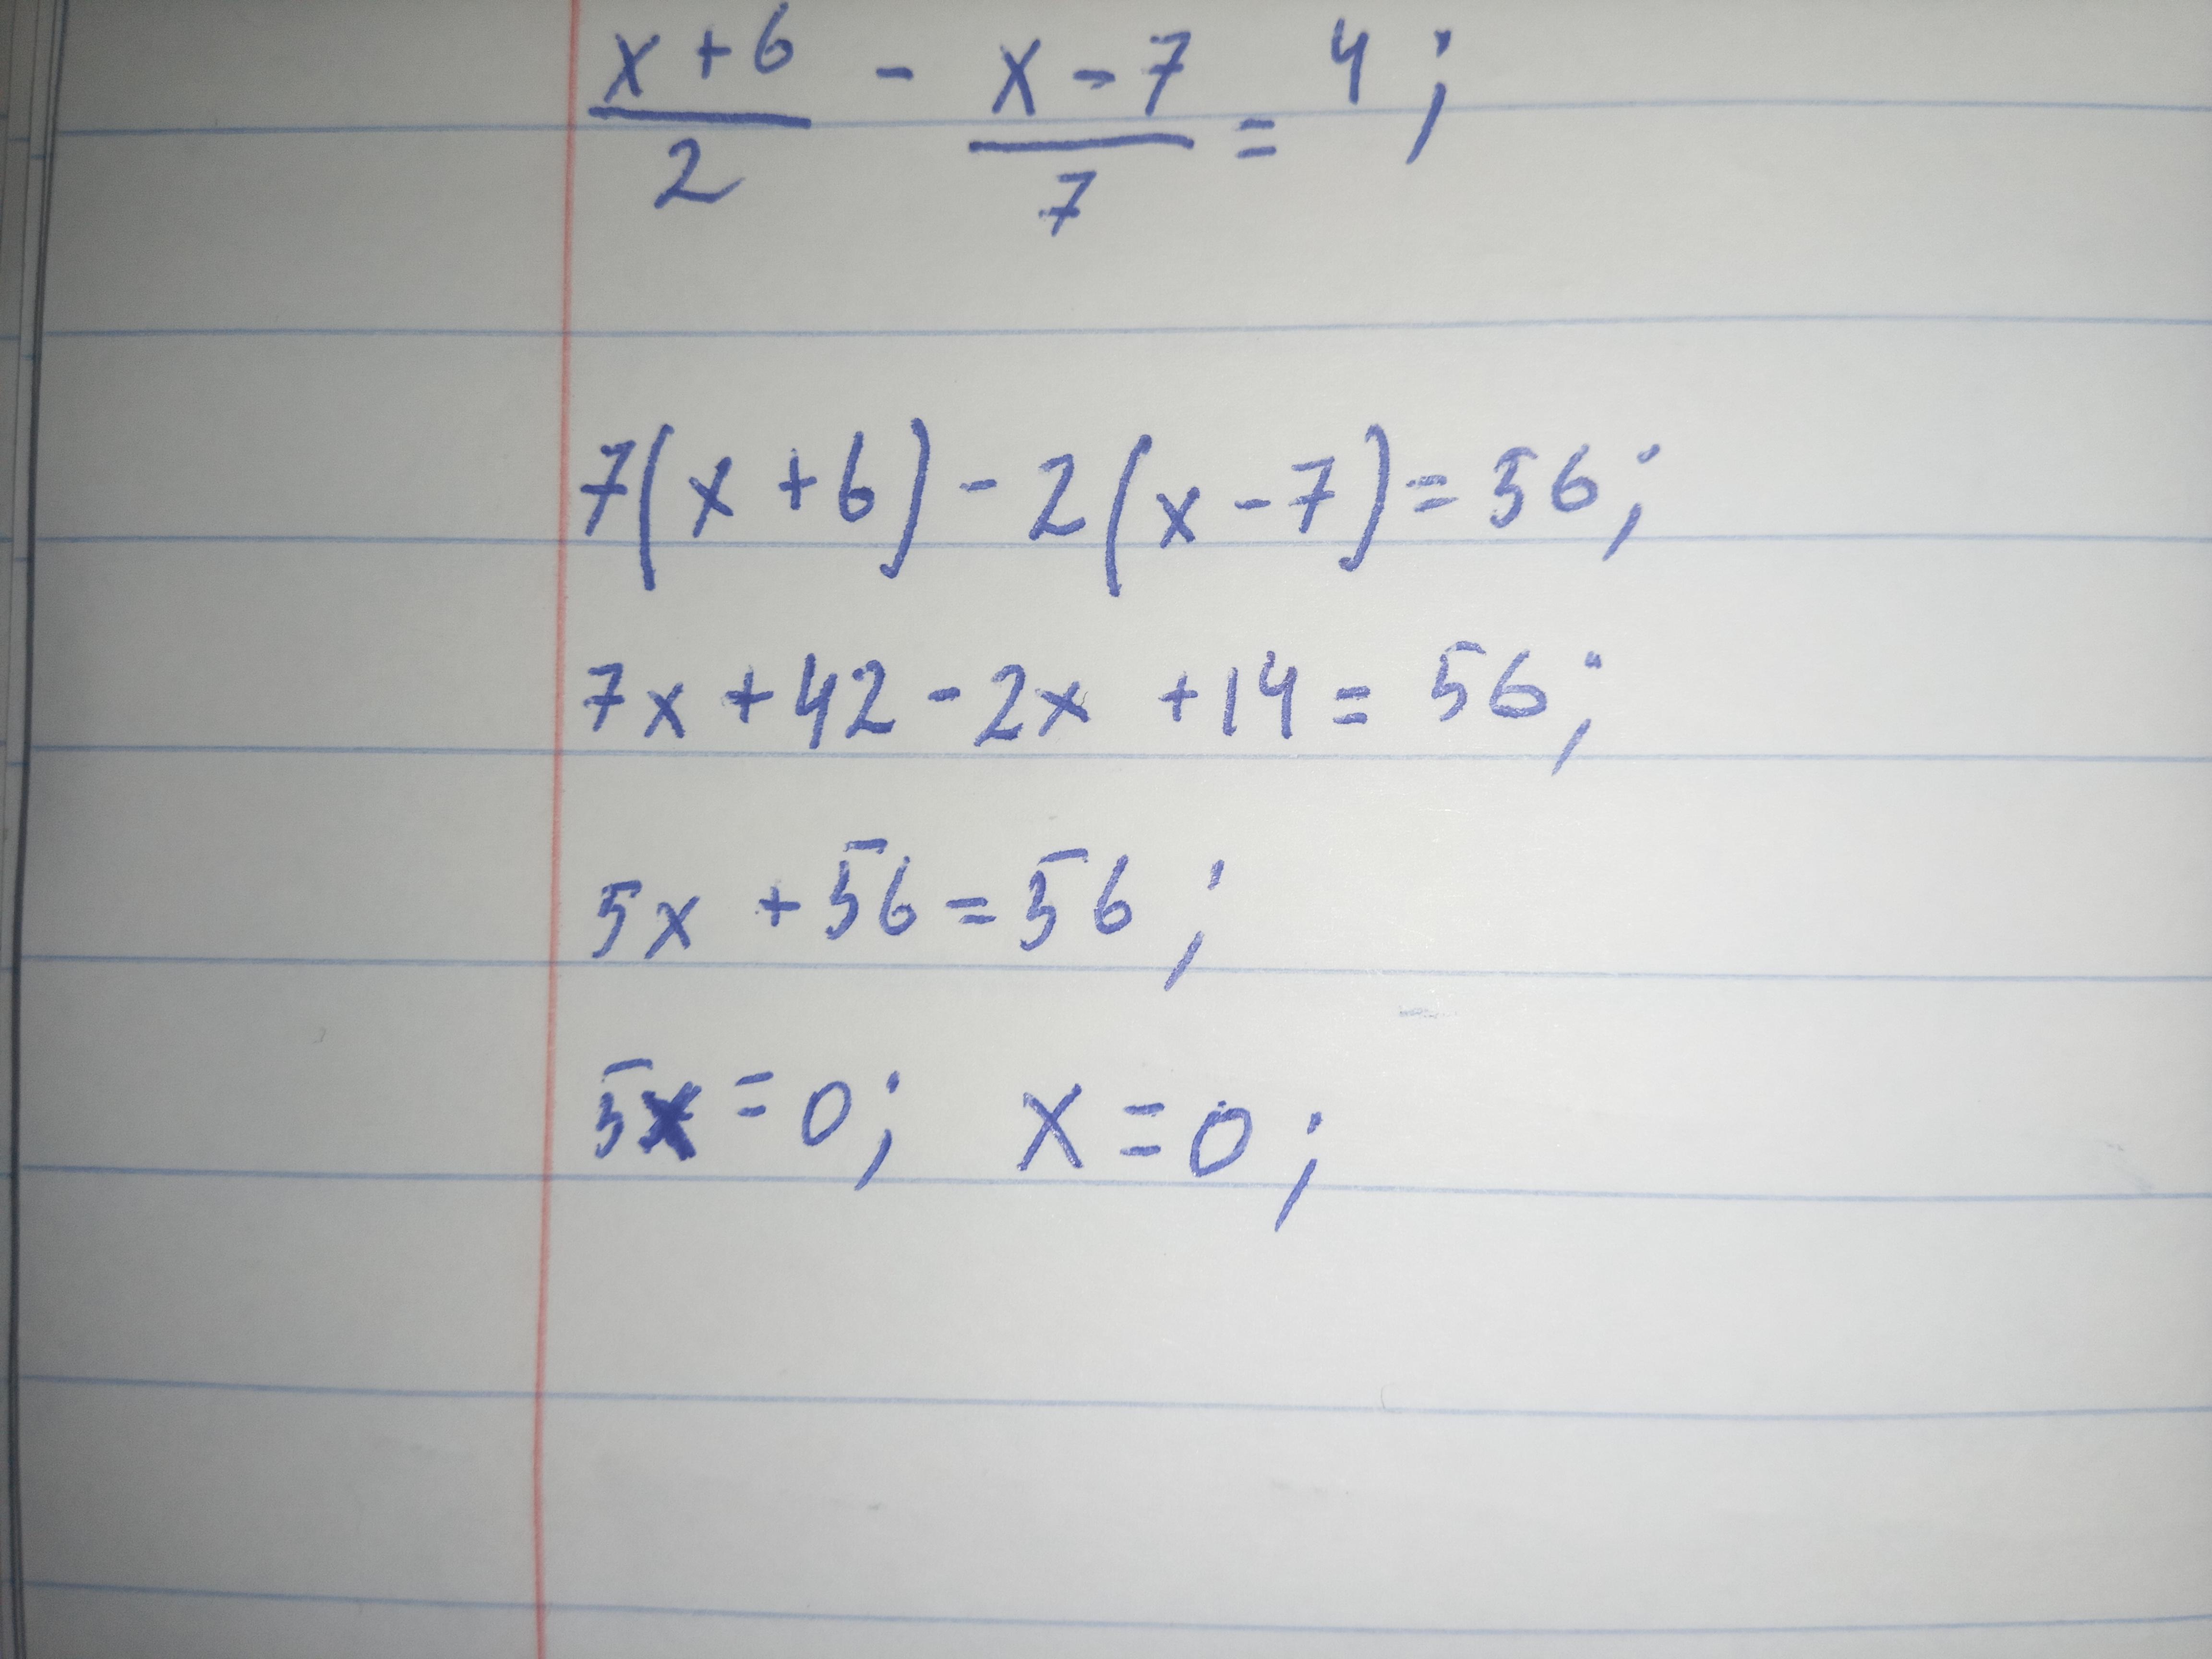 (x+6)/2 - (x-7)/7 = 4;
7(x+6)-2(x-7)=56;
7x+42-2x+14=56;
5x+56=56;
5x=0; x=0;